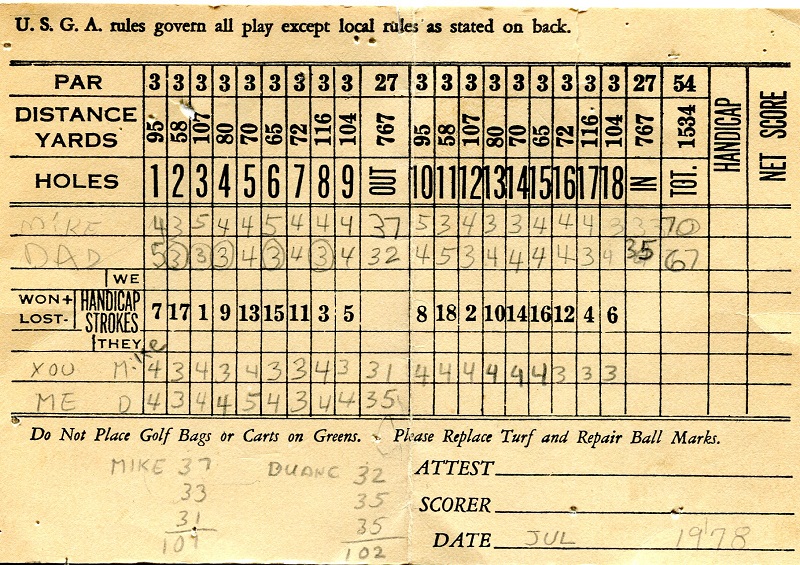 U. S. G. A. rules govern all play except local rules as stated on back.
PAR 3 3 3 3 3 3 3 3 3 27 3 3 3 3 3 3 3 3 3 27 54 HANDICAP NET SCORE
DISTANCE YARDS 95 58 107 80 70 65 72 116 104 767 95 58 107 80 70 65 72 116 104 767 1534
HOLES 1 2 3 4 5 6 7 8 9 OUT 10 11 12 13 14 15 16 17 18 IN TOT.
MIKE 4 3 5 4 4 5 4 4 4 37 5 3 4 3 3 4 4 4 3 33 70
DAD 5 3 3 3 4 3 4 3 4 32 4 5 3 4 4 4 4 3 4 35 67
WE
WON+ LOST- HANDICAP STROKES 7 17 1 9 13 15 11 3 5 8 18 2 10 14 16 12 4 6
THEY
YOU Mike 4 3 4 3 4 3 3 4 3 31 4 4 4 4 4 4 3 3 3
ME D 4 3 4 4 5 4 3 4 4 35
Do Not Place Golf Bags or Carts on Greens. Please Replace Turf and Repair Ball Marks.
MIKE 37 DUANE 32 ATTEST
33 35 SCORER
31 35
101 102 DATE JUL 1978